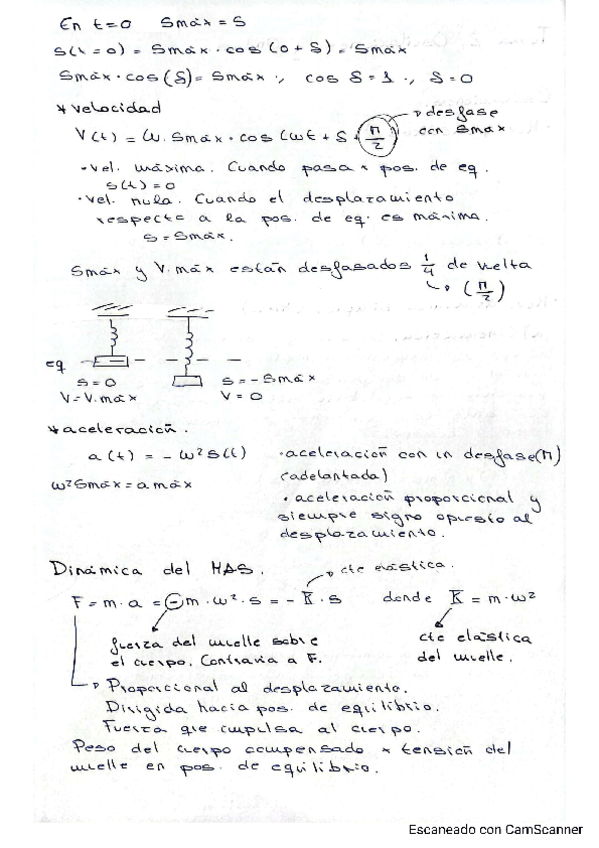 En t=0 Smáx = S
S(t=0) = Smáx · cos (0 + δ) = Smáx
Smáx · cos (δ) = Smáx ∴ cos δ = 1 ∴ δ = 0
* velocidad
V(t) = ω · Smáx · cos (ωt + δ + π/2) → desfase con Smáx
· vel. máxima. Cuando pasa x pos. de eq.
S(t) = 0
· vel. nula. Cuando el desplazamiento
respecto a la pos. de eq. es máxima.
S = Smáx.
Smáx y V.máx están desfasados 1/4 de vuelta
↳ (π/2)
eq
S = 0 S = - Smáx
V = V.máx V = 0
* aceleración.
a(t) = - ω² S(t) · aceleración con un desfase (π)
(adelantada)
ω² Smáx = a máx
· aceleración proporcional y
siempre signo opuesto al
desplazamiento.
Dinámica del MAS. → cte elástica.
F = m · a = - m · ω² · s = - K · s donde K = m · ω²
fuerza del muelle sobre cte elástica
el cuerpo. Contraria a F. del muelle.
→ Proporcional al desplazamiento.
Dirigida hacia pos. de equilibrio.
Fuerza que impulsa al cuerpo.
Peso del cuerpo compensado x tensión del
muelle en pos. de equilibrio.
Escaneado con CamScanner